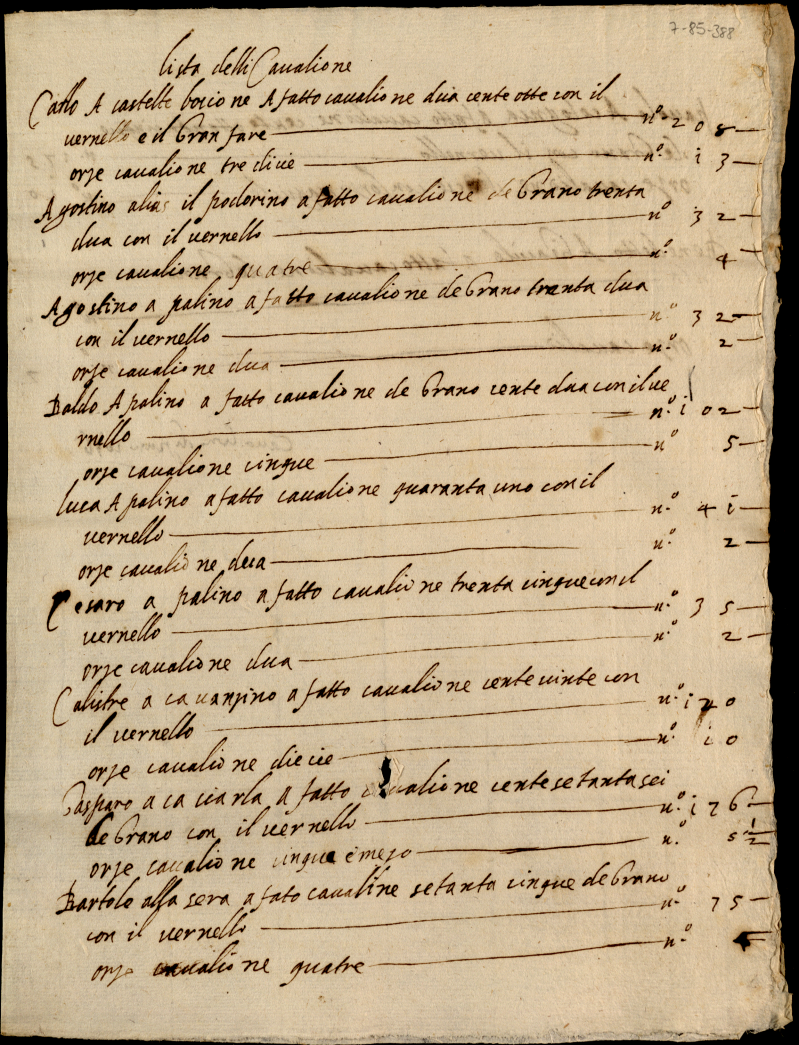 7-85-388
lista delli Cavalione
Carlo A castelle bocione A fatto cavalione dua cente otte con il
vernello e il Gran fare n.º 2 0 8
orze cavalione tre dicie n.º i 3
Agostino alias il podorino a fatto cavalione de Grano trenta
dua con il vernello n.º 3 2
orze cavalione quatre n.º 4
Agostino a palino a fatto cavalione de Grano trenta dua
con il vernello n.º 3 2
orze cavalione dua n.º 2
Baldo A palino a fatto cavalione de Grano cente dua con il ve
rnello n.º i 0 2
orze cavalione cinque n.º 5
luca A palino a fatto cavalione quaranta uno con il
vernello n.º 4 i
orze cavalione dua n.º 2
Cesaro a palino a fatto cavalione trenta cinque con il
vernello n.º 3 5
orze cavalione dua n.º 2
Calistre a ca vanzino a fatto cavalione cente vinte con
il vernello n.º i 2 0
orze cavalione diecie n.º i 0
Gasparo a ca ciarla a fatto cavalione cente setanta sei
de Grano con il vernello n.º i 7 6
orze cavalione cinque e mezo n.º 5 1/2
Bartolo alla sera a fato cavaline setanta cinque de Grano
con il vernello n.º 7 5
orze cavalione quatre n.º 4